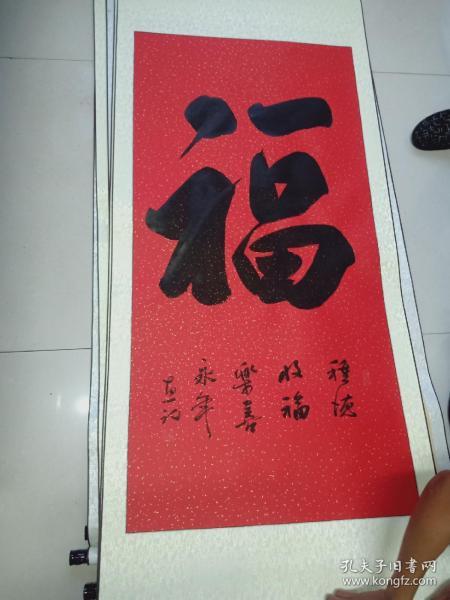 福
種德
收福
樂善
永年
孔夫子旧书网
www.kongfz.com